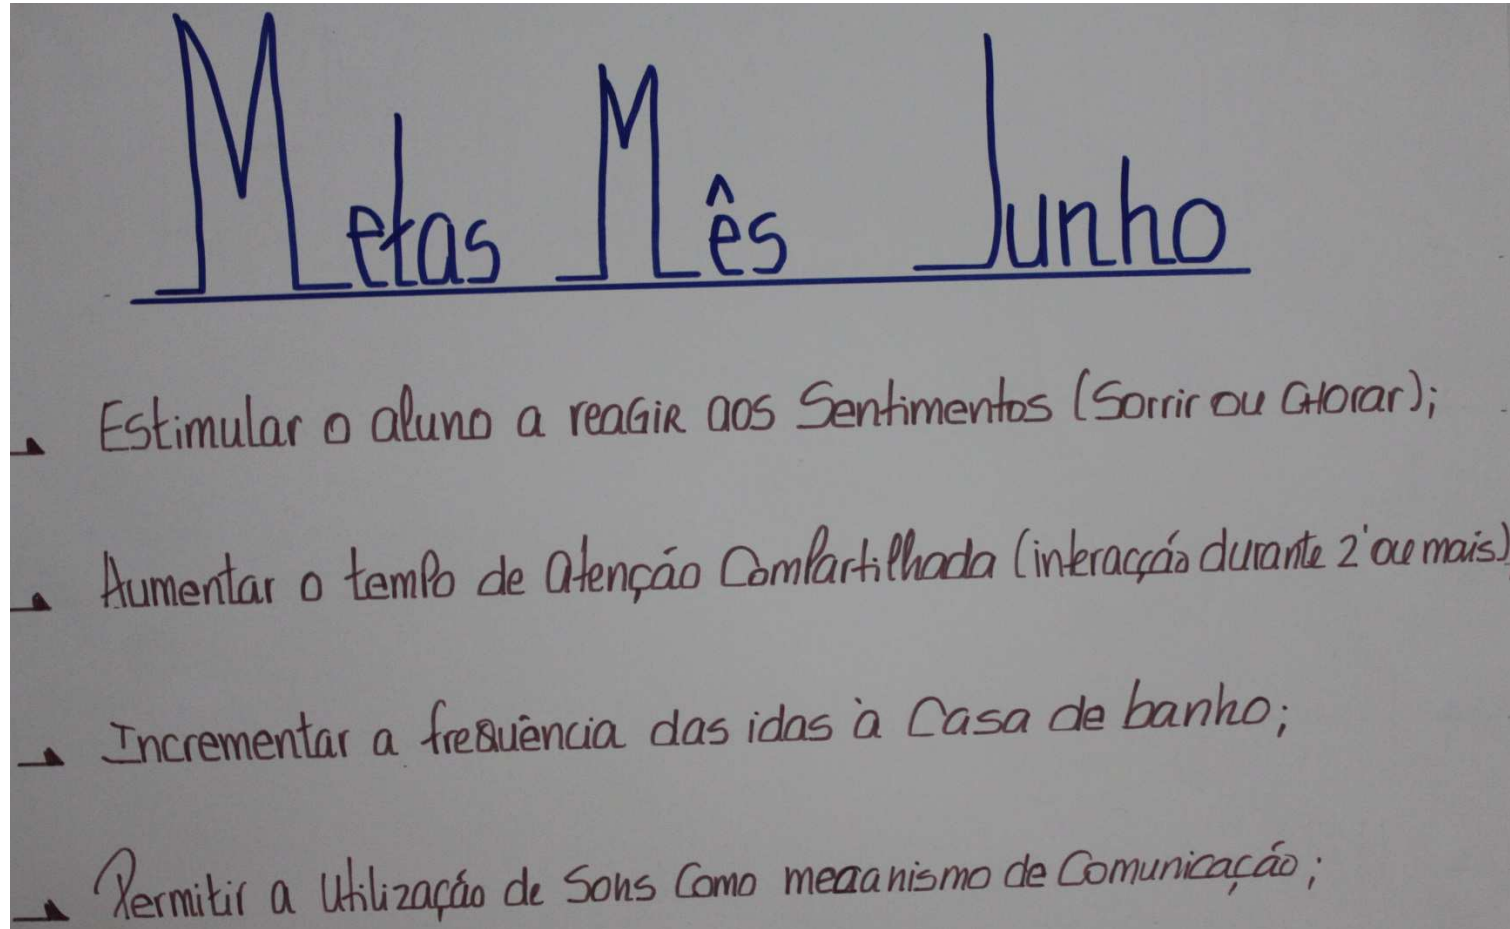 Metas Mês Junho
Estimular o aluno a reaGiR aos Sentimentos (Sorrir ou CHorar);
Aumentar o tempo de atenção Compartilhada (interacção durante 2' ou mais)
Incrementar a freQuência das idas à Casa de banho;
Permitir a Utilização de Sons Como mecanismo de Comunicação;